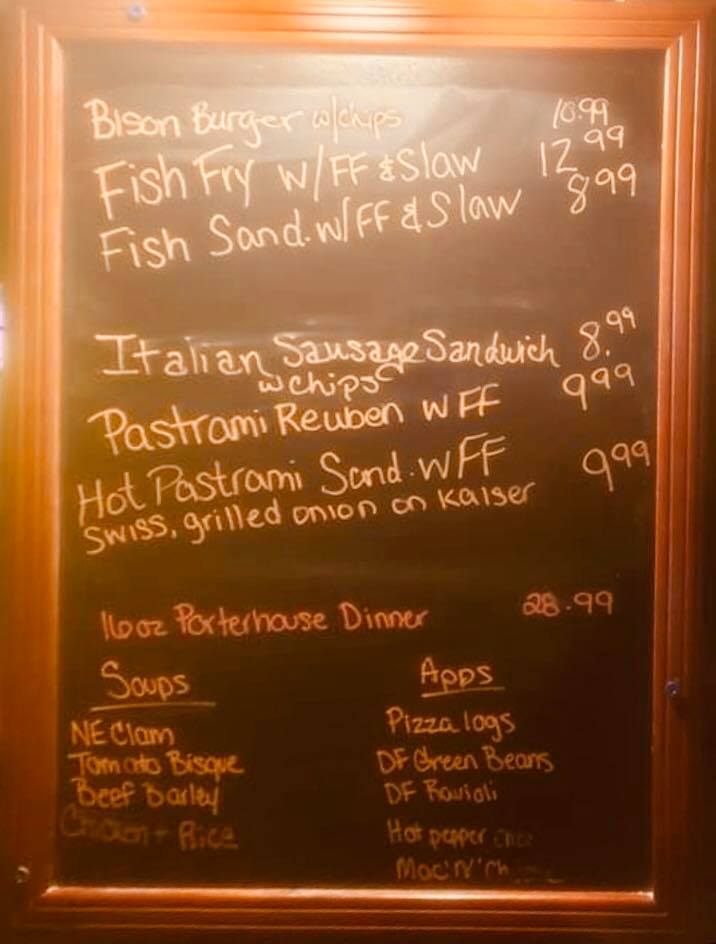 Bison Burger w/chips 10.99
Fish Fry w/FF & Slaw 12.99
Fish Sand. w/FF & Slaw 8.99
Italian Sausage Sandwich 8.99
w chips
Pastrami Reuben w FF 9.99
Hot Pastrami Sand. w FF 9.99
Swiss, grilled onion on Kaiser
16oz Porterhouse Dinner 28.99
Soups Apps
NE Clam Pizza logs
Tomato Bisque DF Green Beans
Beef Barley DF Ravioli
Chicken + Rice Hot pepper
Mac'N'